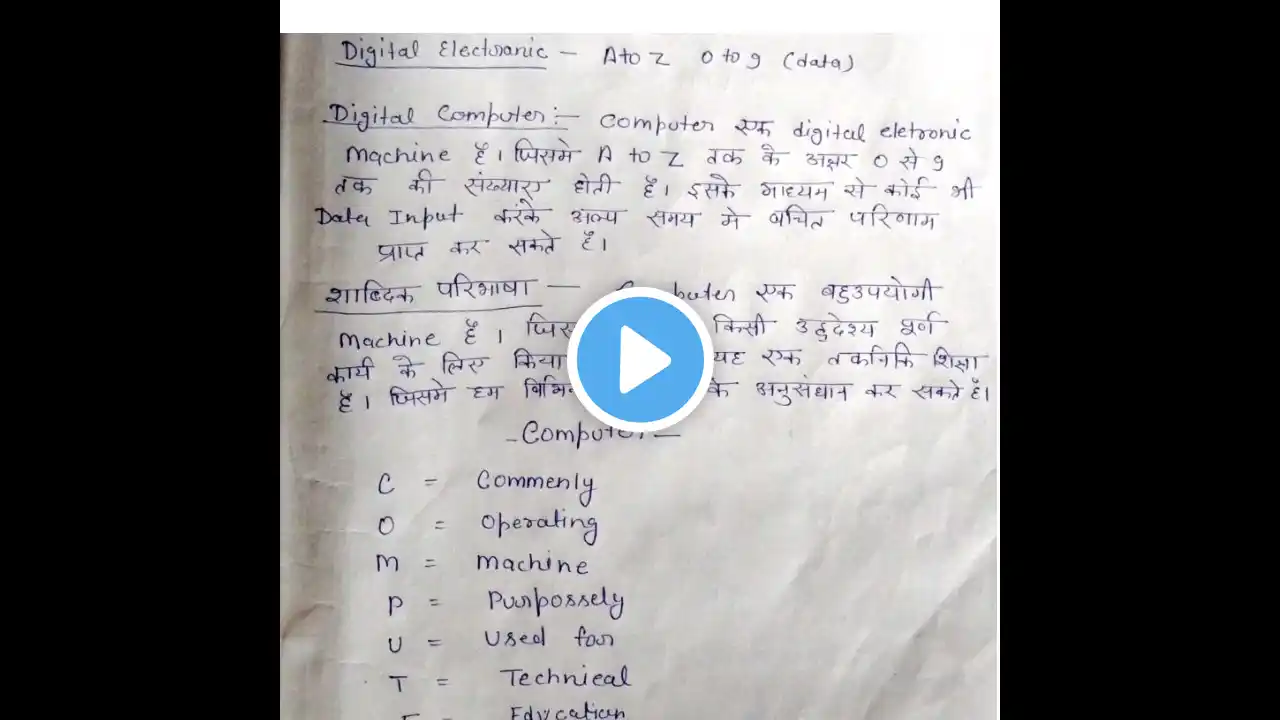 Digital Electoranic — A to Z 0 to 9 (data)
Digital Computer :— Computer एक digital eletronic
Machine है। जिसमे A to Z तक के अक्षर 0 से 9
तक की संख्याए होती है। इसके माध्यम से कोई भी
Data Input करके अल्प समय मे बचित परिणाम
प्राप्त कर सकते है।
शाब्दिक परिभाषा — एक बहुउपयोगी
Machine है। किसी उद्देश्य पूर्ण
कार्य के लिए किया यह एक तकनिकि शिक्षा
है। जिसमे हम के अनुसंधान कर सकते है।
- Computer —
C = Commenly
O = Operating
M = Machine
P = Purpossely
U = Used for
T = Technical
= Education